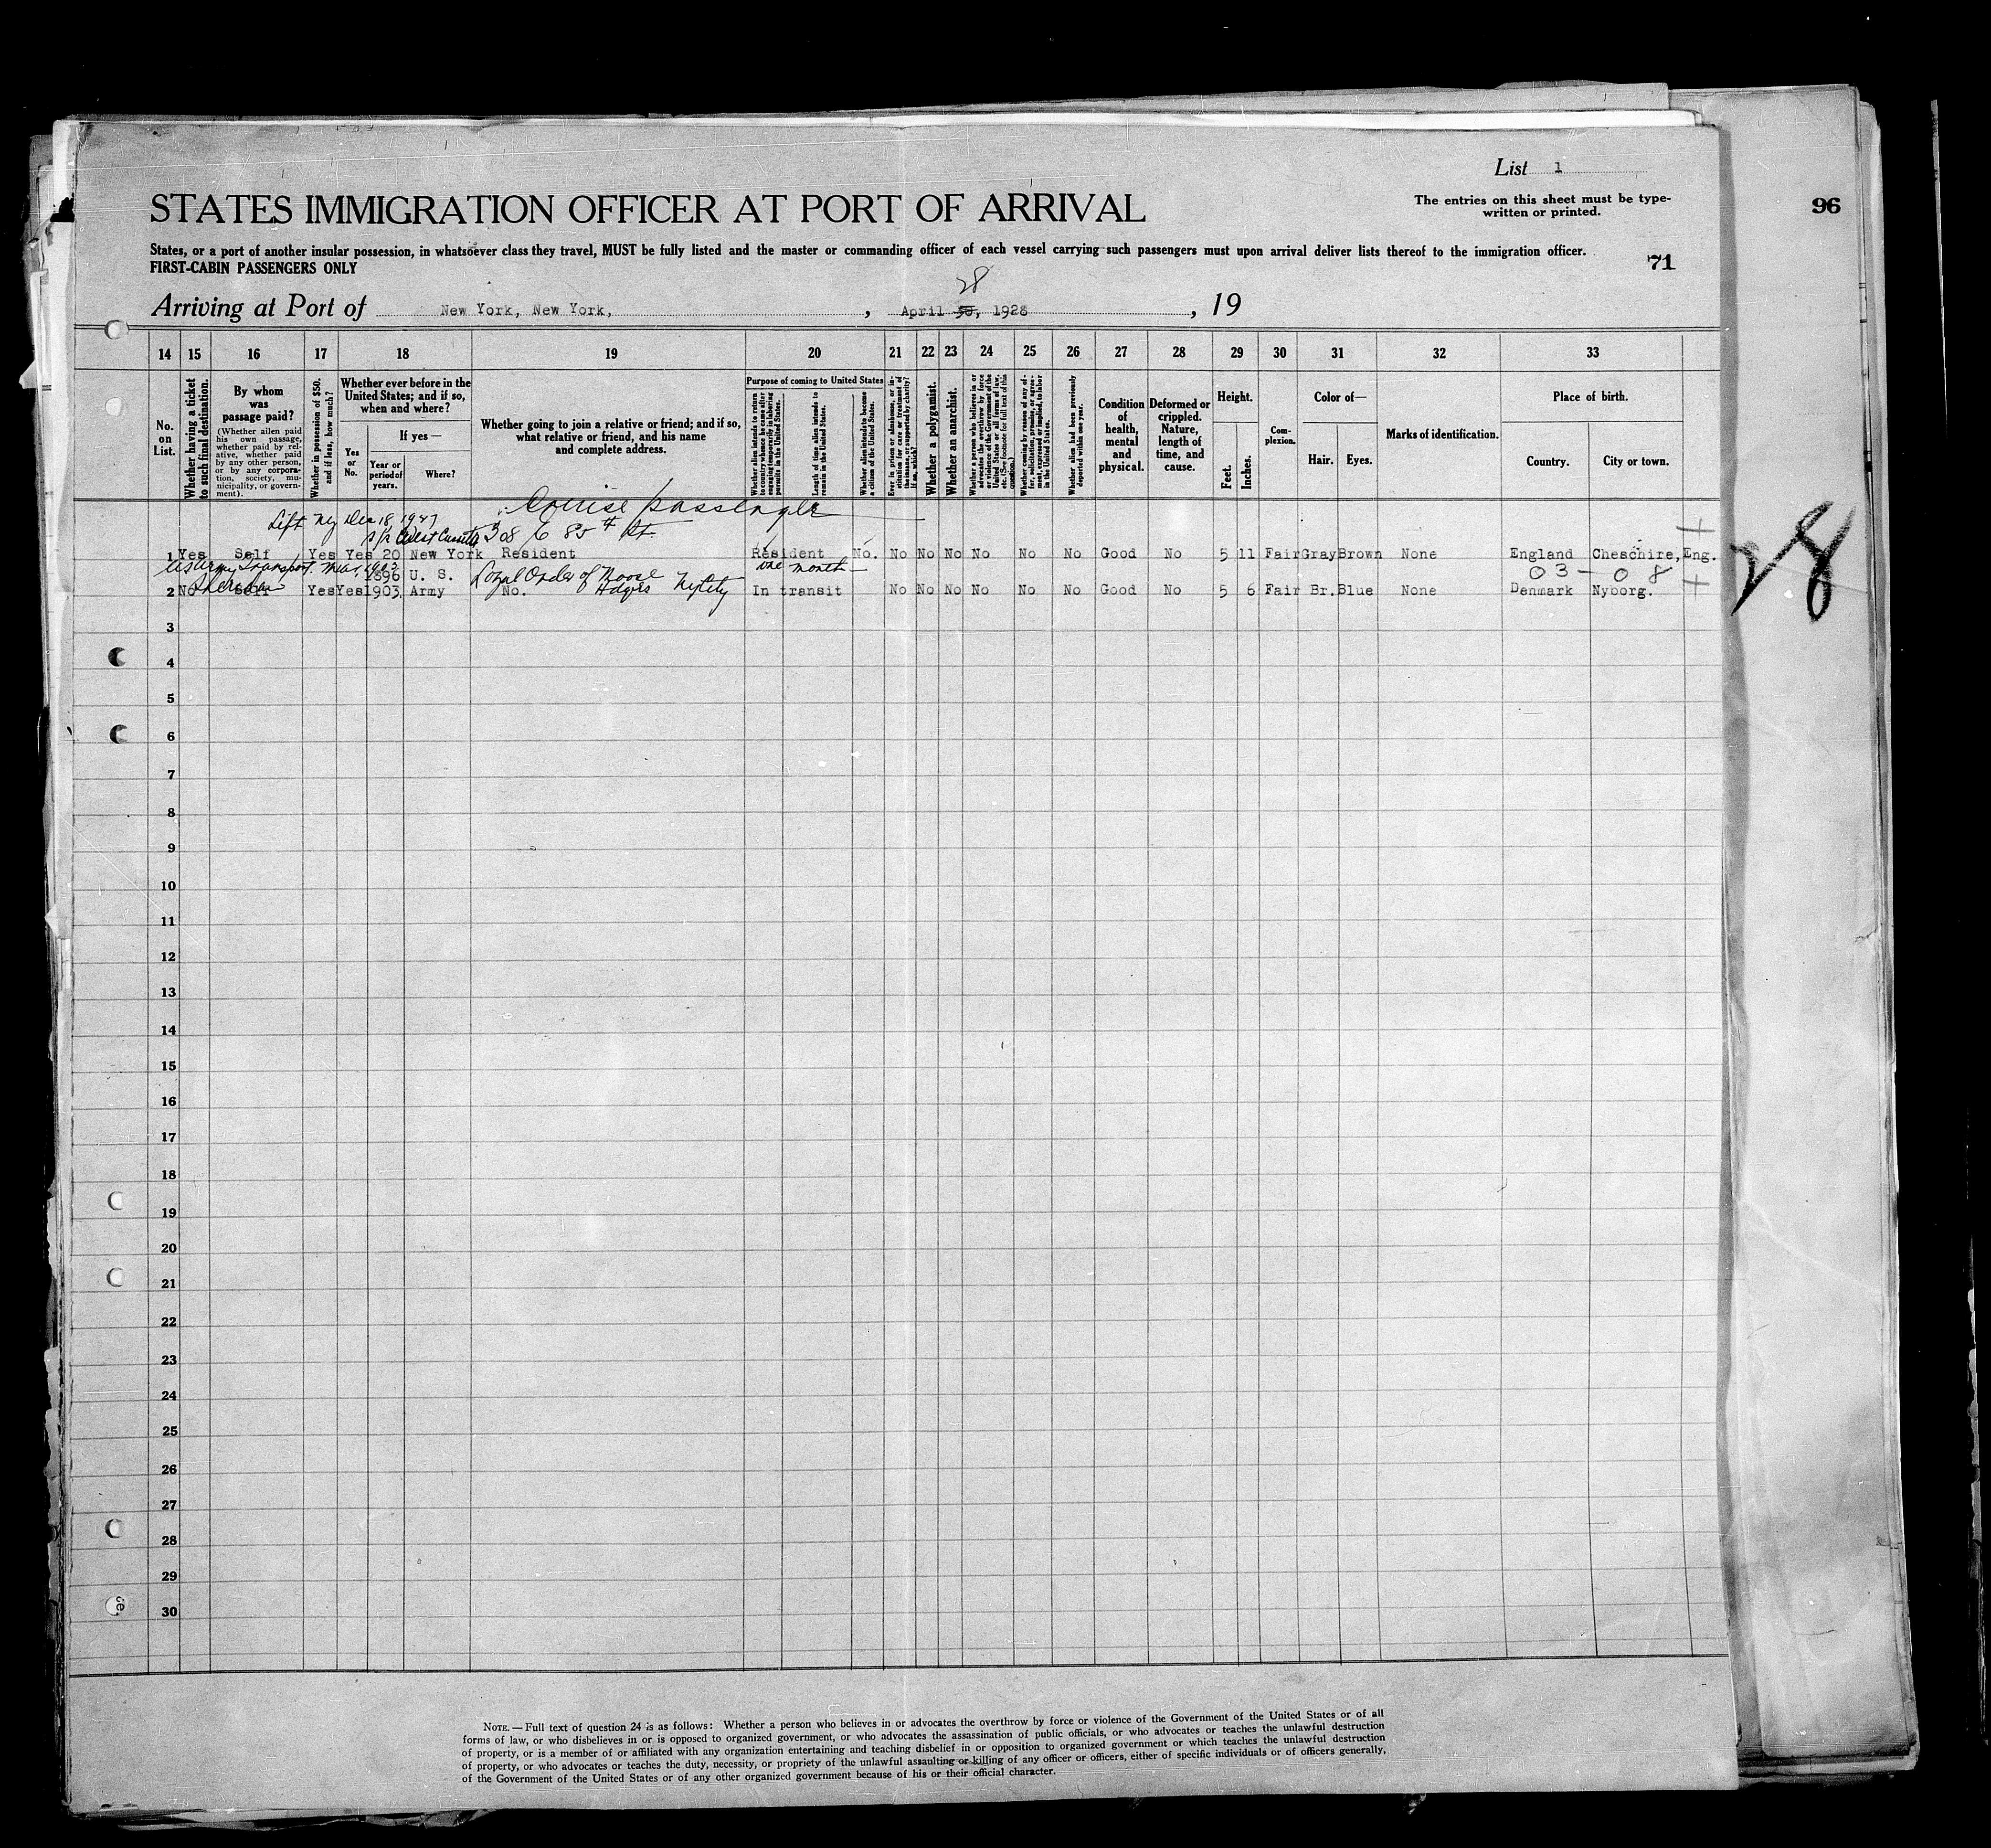 List 1
STATES IMMIGRATION OFFICER AT PORT OF ARRIVAL
The entries on this sheet must be type-
written or printed.
96
States, or a port of another insular possession, in whatsoever class they travel, MUST be fully listed and the master or commanding officer of each vessel carrying such passengers must upon arrival deliver lists thereof to the immigration officer.
FIRST-CABIN PASSENGERS ONLY
71
28
Arriving at Port of New York, New York, , April 30, 1928 , 19
14 15 16 17 18 19 20 21 22 23 24 25 26 27 28 29 30 31 32 33
No. on List.
Whether having a ticket to such final destination.
By whom was passage paid?
(Whether alien paid his own passage, whether paid by relative, whether paid by any other person, or by any corporation, society, municipality, or government).
Whether in possession of $50, and if less, how much?
Whether ever before in the United States; and if so, when and where?
Yes or No.
If yes—
Year or period of years.
Where?
Whether going to join a relative or friend; and if so, what relative or friend, and his name and complete address.
Purpose of coming to United States
Whether alien intends to return to country whence he came after engaging temporarily in laboring pursuits in the United States.
Length of time alien intends to remain in the United States.
Whether alien intends to become a citizen of the United States.
Ever in prison or almshouse, or institution for care or treatment of the insane, or supported by charity? If so, which?
Whether a polygamist.
Whether an anarchist.
Whether a person who believes in or advocates the overthrow by force or violence of the Government of the United States or all forms of law, etc. (See footnote for full text of this question.)
Whether coming by reason of any offer, solicitation, promise, or agreement, expressed or implied, to labor in the United States.
Whether alien had been previously deported within one year.
Condition of health, mental and physical.
Deformed or crippled. Nature, length of time, and cause.
Height.
Feet.
Inches.
Complexion.
Color of—
Hair.
Eyes.
Marks of identification.
Place of birth.
Country.
City or town.
Cruise passenger
Left NY Dec 18, 1927
308 E 85th St
1 Yes Self Yes Yes 20 New York Resident Resident No. No No No No No No Good No 5 11 Fair Gray Brown None England Cheschire, Eng.
US Army Transport. Mar, 1903
Sherman
1896 U. S. Loyal Order of Moose one month 03 - 08
2 No Self Yes Yes 1903 Army No. NY City In transit No No No No No No Good No 5 6 Fair Br. Blue None Denmark Nyborg.
28
3
4
5
6
7
8
9
10
11
12
13
14
15
16
17
18
19
20
21
22
23
24
25
26
27
28
29
30
NOTE.—Full text of question 24 is as follows: Whether a person who believes in or advocates the overthrow by force or violence of the Government of the United States or of all
forms of law, or who disbelieves in or is opposed to organized government, or who advocates the assassination of public officials, or who advocates or teaches the unlawful destruction
of property, or is a member of or affiliated with any organization entertaining and teaching disbelief in or opposition to organized government or which teaches the unlawful destruction
of property, or who advocates or teaches the duty, necessity, or propriety of the unlawful assaulting or killing of any officer or officers, either of specific individuals or of officers generally,
of the Government of the United States or of any other organized government because of his or their official character.